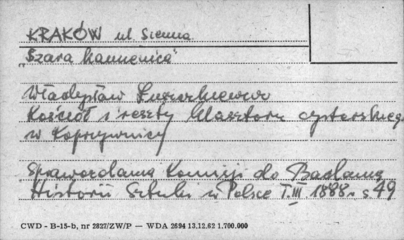 KRAKÓW ul Sienna
"Szara kamienica"
Władysław Łuszczkiewicz
Kościół i reszty klasztoru cysterskiego
w Koprzywnicy
Sprawozdania Komisji do Badania
Historii Sztuki w Polsce T. III 1888 r s. 49
CWD - B-15-b, nr 2827/ZW/P — WDA 2694 13.12.62 1.700.000